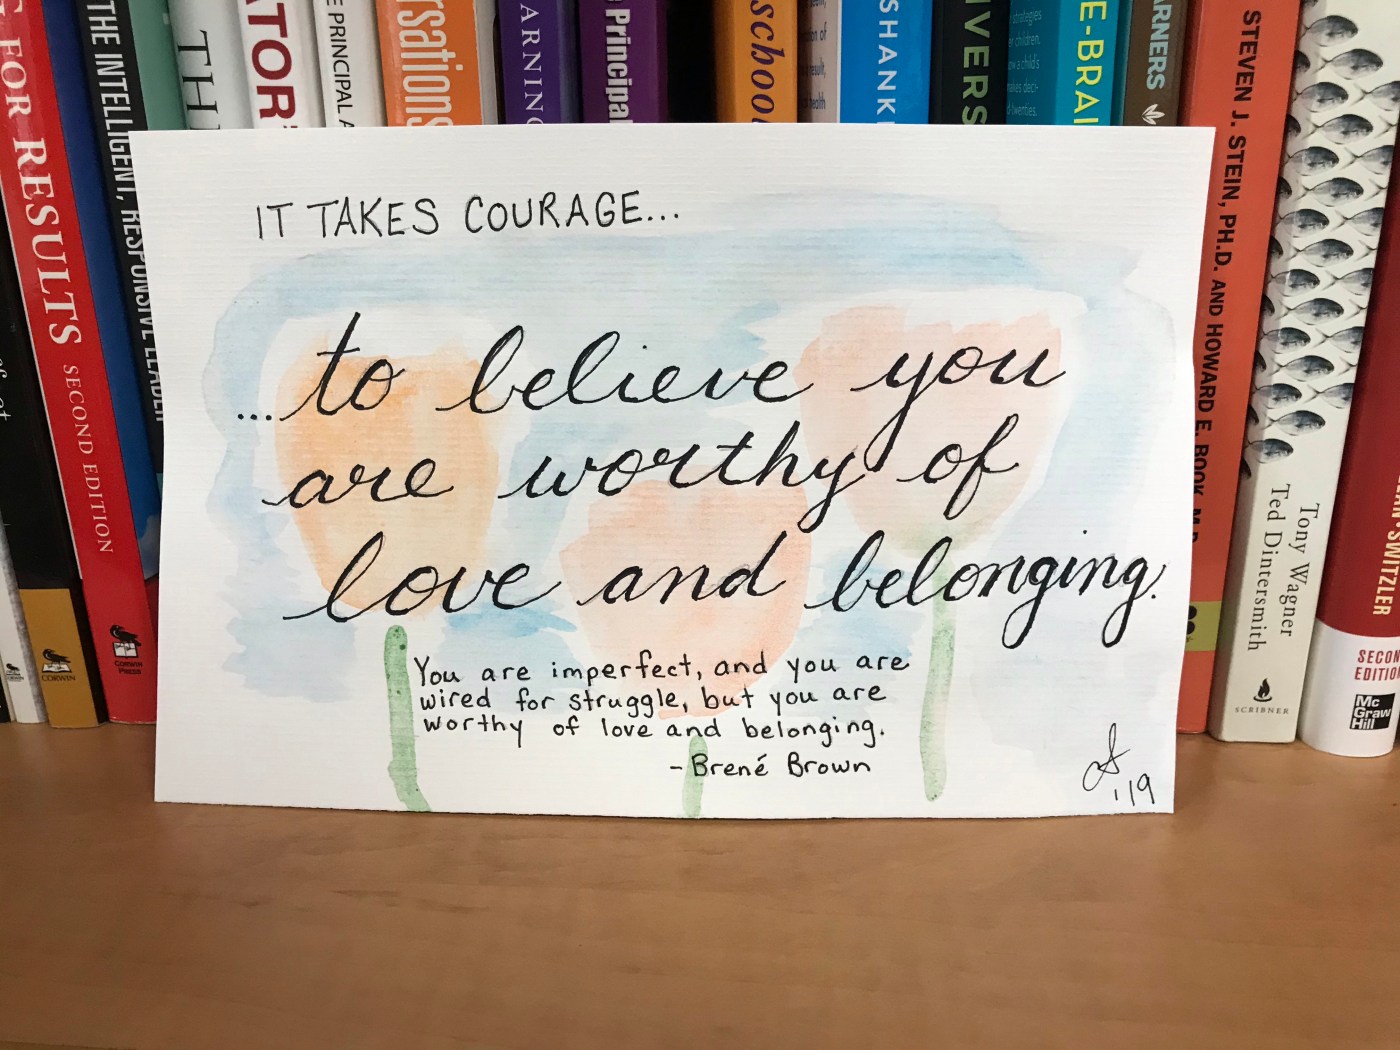 IT TAKES COURAGE...
...to believe you
are worthy of
love and belonging.
You are imperfect, and you are
wired for struggle, but you are
worthy of love and belonging.
- Brené Brown
'19
FOR RESULTS SECOND EDITION
CORWIN PRESS
CORWIN
THE INTELLIGENT, RESPONSIVE LEADER
TH
ATOR'
E PRINCIPAL A
rsations
ARNING
Principal
school
SHANK
IVERS
strategies
er children.
ow a child's
makes deci-
d twenties.
E-BRAI
ARNERS
STEVEN J. STEIN, PH.D. AND HOWARD E. BOOK, M.D.
Tony Wagner
Ted Dintersmith
SCRIBNER
SWITZLER
SECON
EDITION
Mc
Graw
Hill